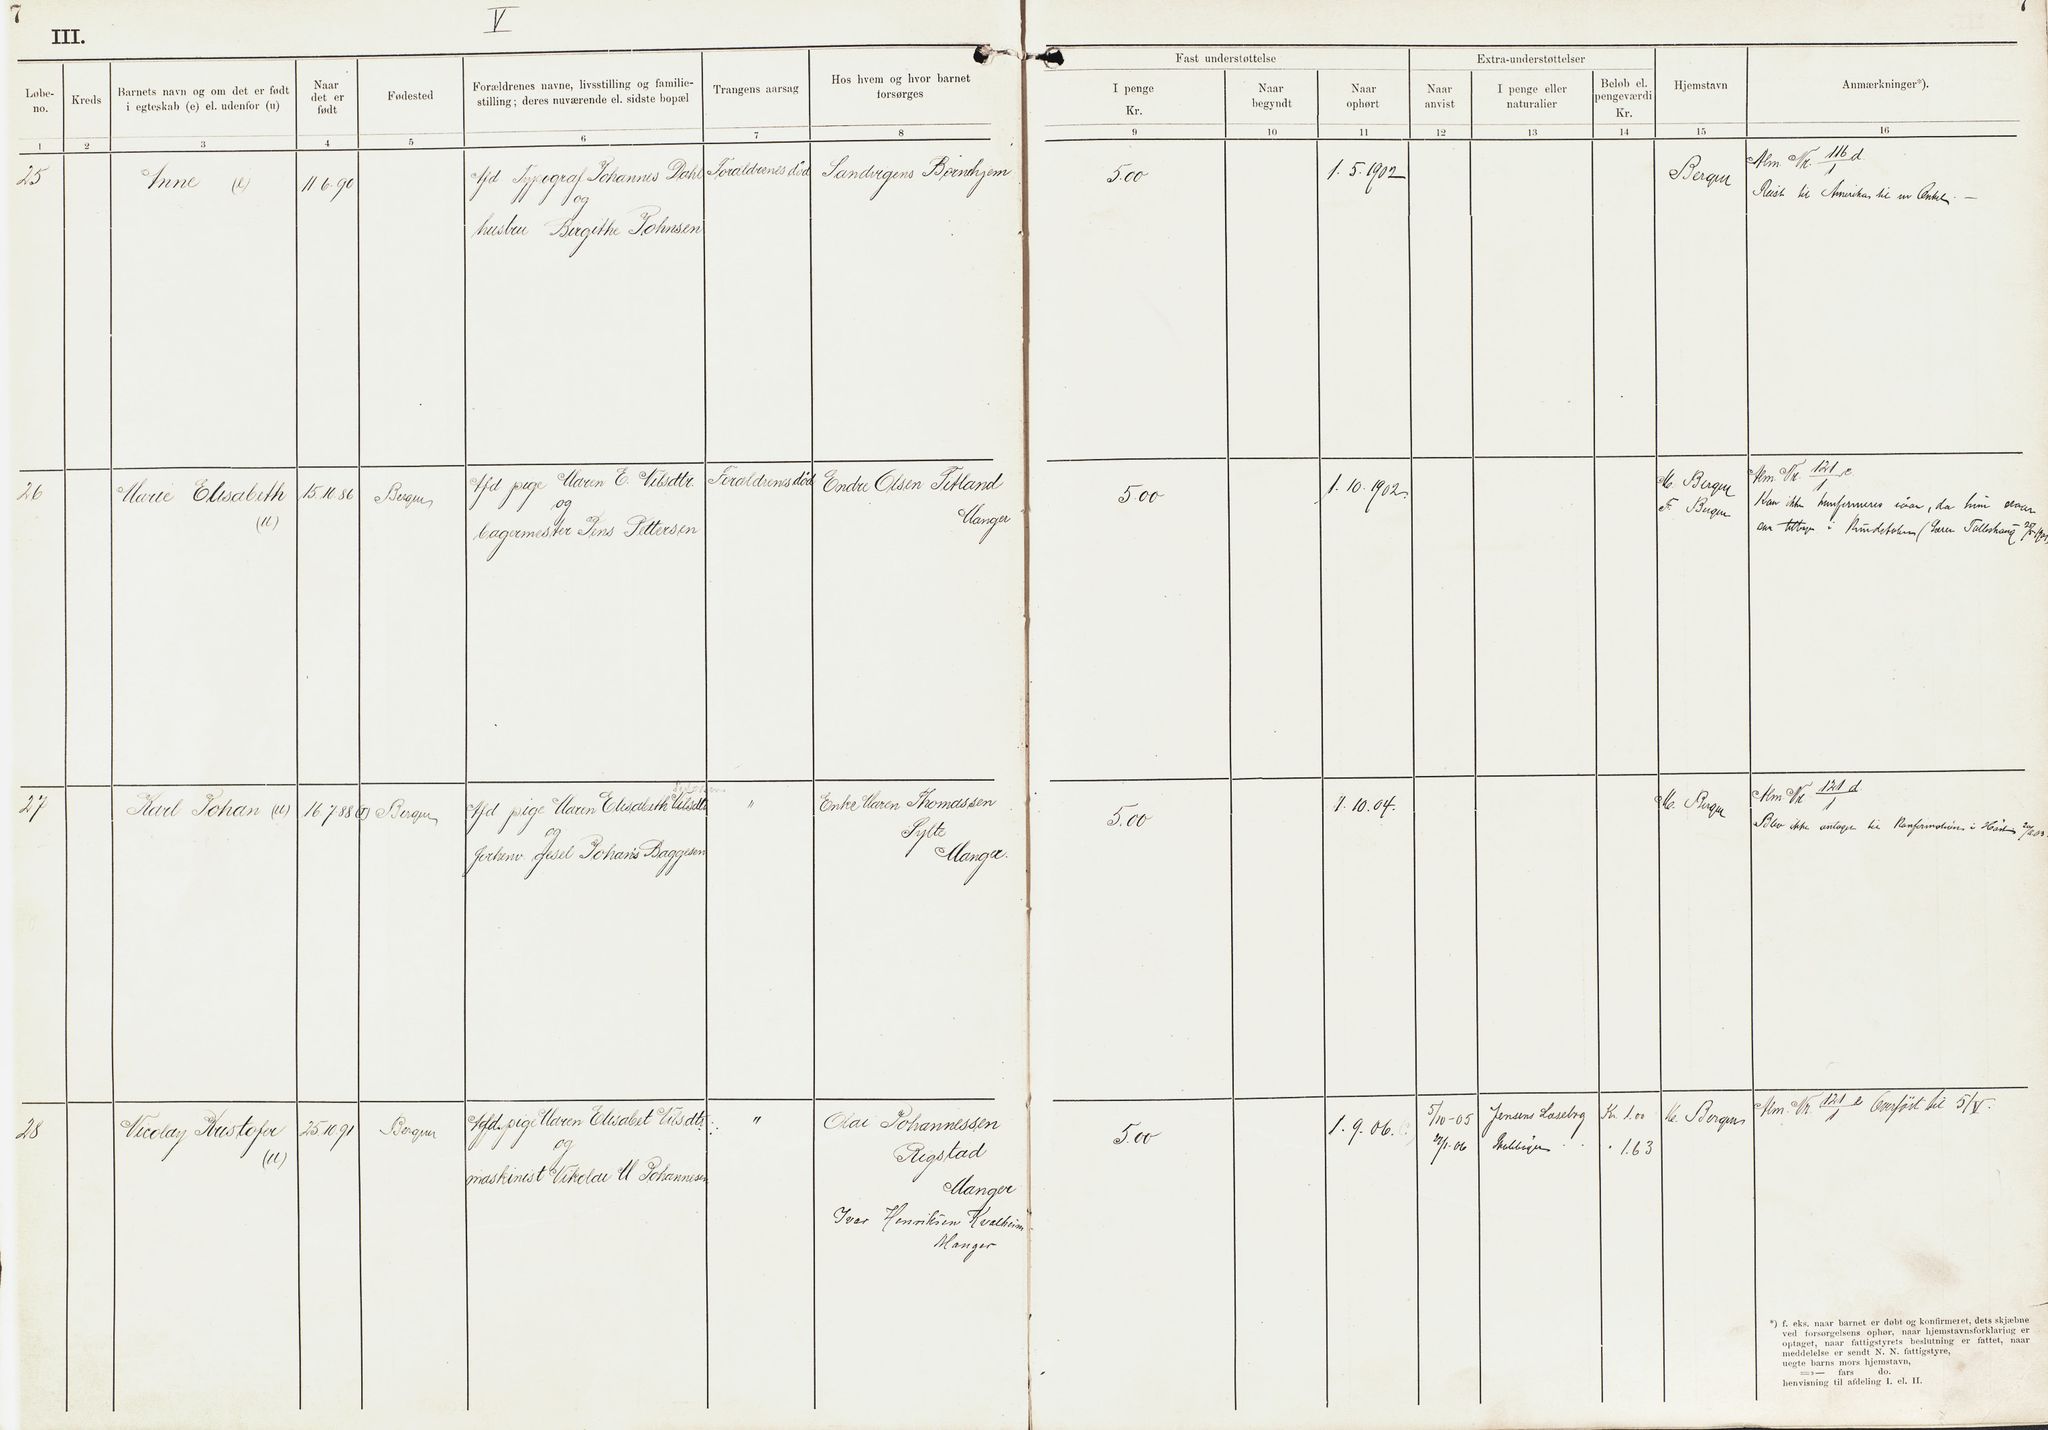 7
V
7
III.
Løbe-
no.
Kreds
Barnets navn og om det er født
i egteskab (e) el. udenfor (u)
Naar
det er
født
Fødested
Forældrenes navne, livsstilling og familie-
stilling; deres nuværende el. sidste bopæl
Trangens aarsag
Hos hvem og hvor barnet
forsørges
Fast understøttelse
I penge
Kr.
Naar
begyndt
Naar
ophørt
Extra-understøttelser
Naar
anvist
I penge eller
naturalier
Beløb el.
pengeværdi
Kr.
Hjemstavn
Anmærkninger*).
1 2 3 4 5 6 7 8 9 10 11 12 13 14 15 16
25
Anne (e)
11 6.90
Afd Typograf Johannes Dahl
og
hustru Birgithe Johnsen
Forældrenes død
Sandvigens Børnehjem
5.00
1.5.1902
Bergen
Alm. Nr. 116 d/1
Reist til Amerika til en Onkel. —
26
Marie Elisabeth
(u)
15.10 86
Bergen
Afd pige Maren E. Nilsdtr.
og
bagermester Jens Pettersen
Forældrenes død
Endre Olsen Titland
Manger
5.00
1.10.1902.
M. Bergen
F. Bergen
Alm. Nr. 121 c/1
Kan ikke konfirmeres iaar, da hun
27
Karl Johan (u)
16.7 88
Bergen
Afd pige Maren Elisabeth Nilsdtr
og
forhenv. Johans Baggesen
"
Enke Maren Thomassen
Sylte
Manger.
5.00
1.10.04.
M. Bergen
Alm. Nr 121 d/1
Blev ikke antagen til Konfirmation i Høst
28
Nicolay Kristofer
(u)
25.10 91
Bergen
Afd. pige Maren Elisabet Nilsdtr.
og
maskinist Nikolai M Johannesen
"
Olai Johannessen
Rigstad
Manger
Ivar Henriksen Kvalheim
Manger
5.00
1.9.06.
5/10-05 Jensens Læsebog Kr. 1.00
1.63
M. Bergen
Alm. Nr. 121 e/1 Overført til 5/V.
*) f. eks. naar barnet er døbt og konfirmeret, dets skjæbne
ved forsørgelsens ophør, naar hjemstavnsforklaring er
optaget, naar fattigstyrets beslutning er fattet, naar
meddelelse er sendt N. N. fattigstyre,
uegte barns mors hjemstavn,
—»— fars do.
henvisning til afdeling I. el. II.